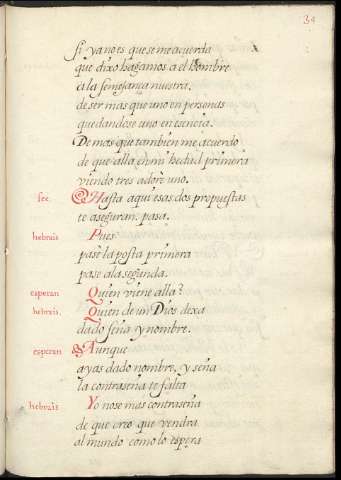 34
si ya no es que se me acuerda
que dixo hagamos a el hombre
a la semejança nuestra.
de ser mas que uno en personas
quedandose uno en esencia.
De mas que tambien me acuerdo
de que alla en mi hedad primera
viendo tres adorè uno.
fee. Hasta aqui esas dos propuestas
te aseguran. pasa.
hebrais Pues
pasè la posta primera
pase a la segunda.
esperan Quien viene alla?
hebrais. Quien de un Dios dexa
dado seña y nombre.
esperan Aunque
ayas dado nombre, y seña
la contraseña te falta
hebrais Yo no se mas contraseña
de que creo que vendra
al mundo como lo espera